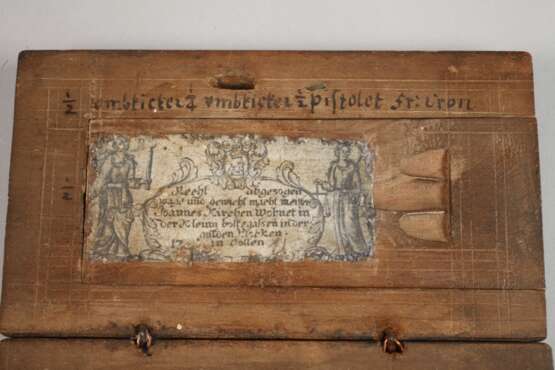 ½ ombticker ¼ ombticker ½ pistolet fr: cron
½
Recht abgezogen
waag und gewicht macht meister
Joannes Kirchen Wohnet in
der Kleinn botte gassen in der
gulden
17 in Collen